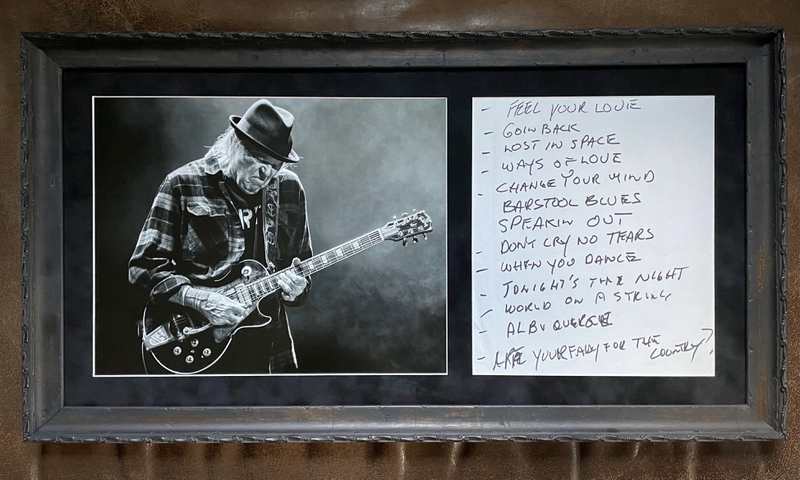 R
- FEEL YOUR LOVE
- GOIN BACK
- LOST IN SPACE
- WAYS OF LOVE
- CHANGE YOUR MIND
BARSTOOL BLUES
SPEAKIN OUT
- DON'T CRY NO TEARS
- WHEN YOU DANCE
- TONIGHT'S THE NIGHT
- WORLD ON A STRING
- ALBUQUERQUE
- ARE YOU READY FOR THE
COUNTRY?